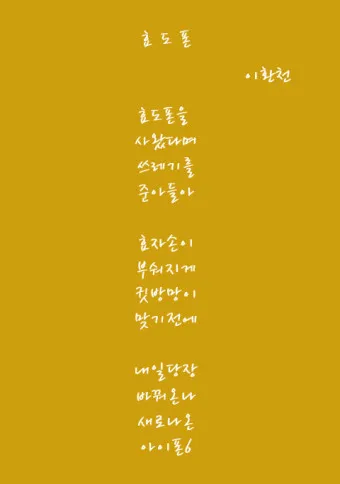 효도폰
이환천
효도폰을
사왔다며
쓰레기를
준아들아
효자손이
부숴지게
귓방망이
맞기전에
내일당장
바꿔온나
새로나온
아이폰6